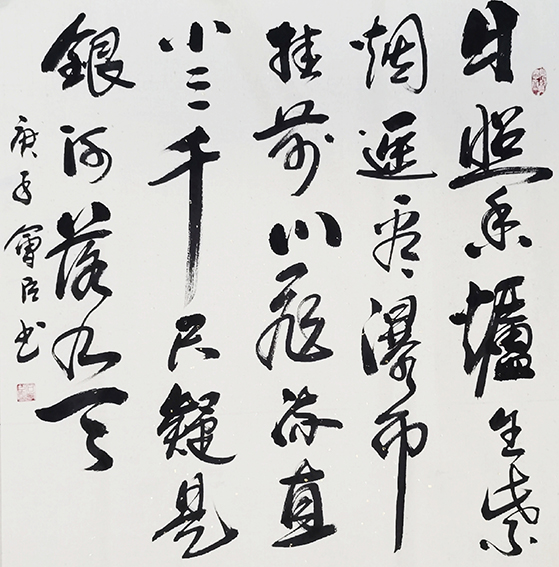 日照香爐生紫
烟遥看瀑布
挂前川飛流直
下三千尺疑是
銀河落九天
庚子會臣书